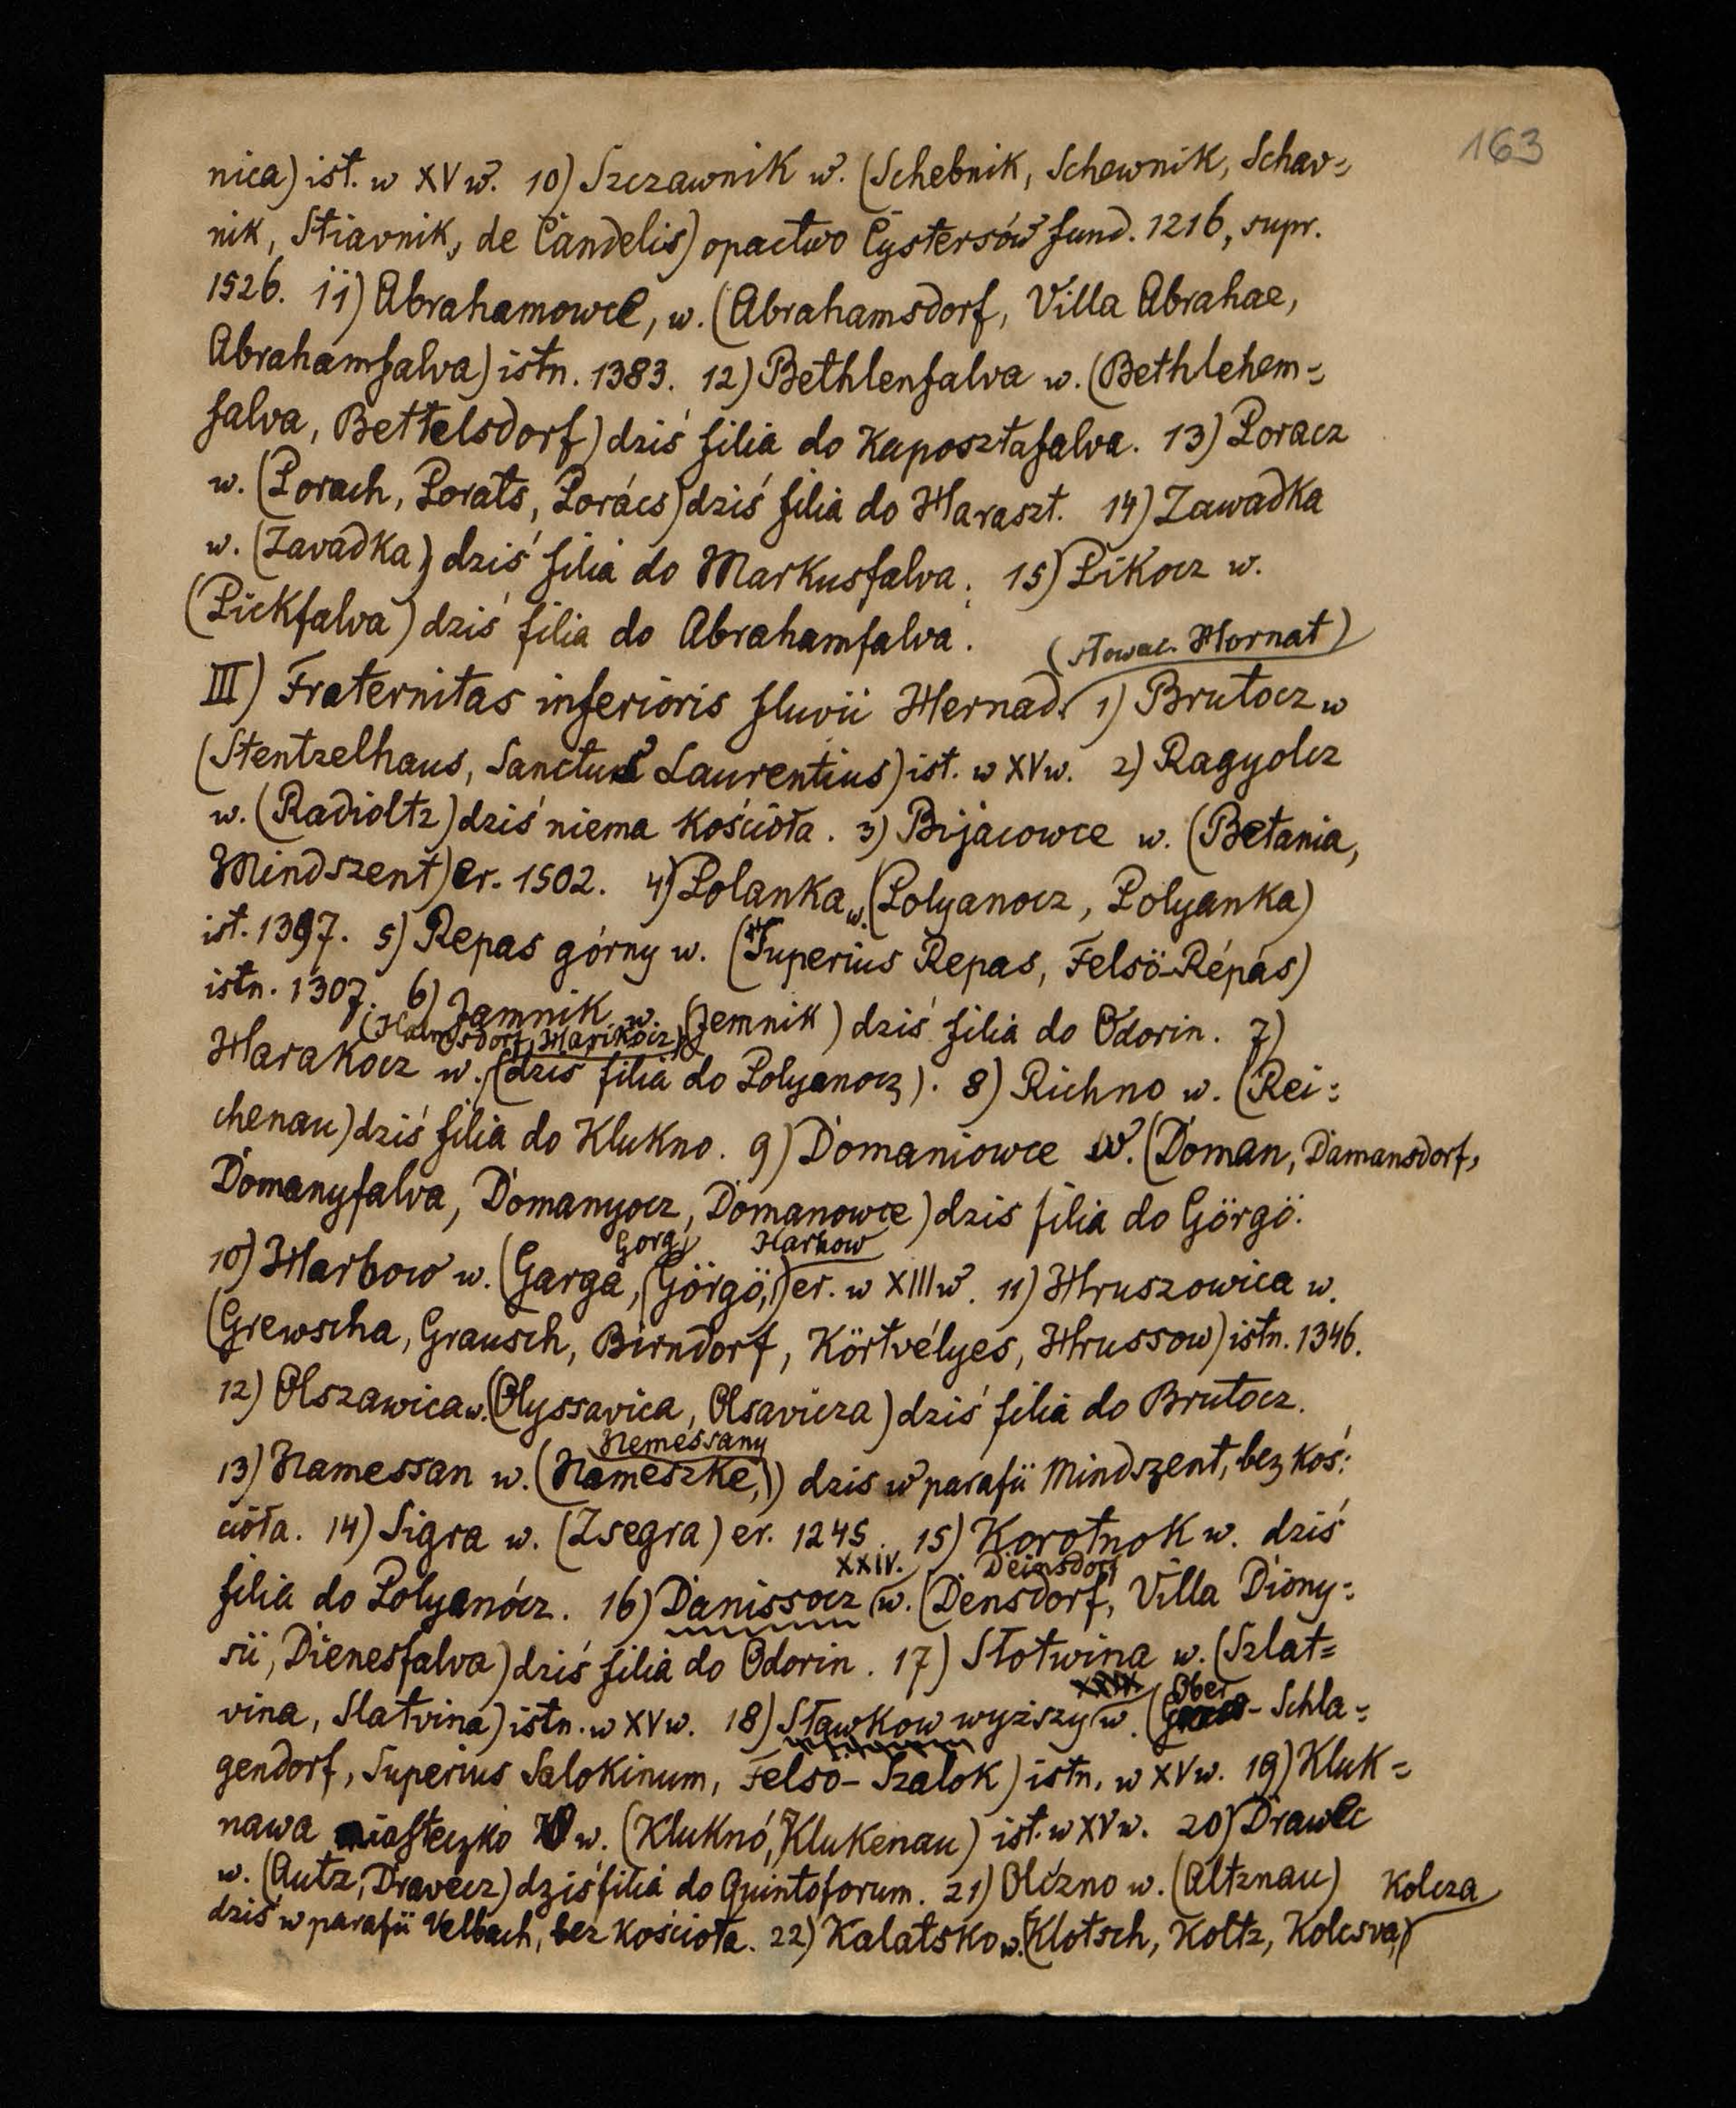 163
nica) ist. w XV w. 10) Szczawnik w. (Schebnik, Schewnik, Schav=
nik, Stiavnik, de Candelis) opactwo Cystersów fund. 1216, supr.
1526. 11) Abrahamowce, w. (Abrahamsdorf, Villa Abrahae,
Abrahamfalva) istn. 1383. 12) Bethlenfalva w. (Bethlehem=
falva, Bettelsdorf) dziś filia do Kaposztafalva. 13) Poracz
w. (Porach, Porats, Porács) dziś filia do Haraszt. 14) Zawadka
w. (Zavadka) dziś filia do Markusfalva. 15) Pikocz w.
(Pickfalva) dziś filia do Abrahamfalva.
(słowac. Hornat)
III) Fraternitas inferioris fluvii Hernad. 1) Brutocz w
(Stentzelhaus, Sanctus Laurentius) ist. w XV w. 2) Ragyolcz
w. (Radioltz) dziś niema kościoła. 3) Bijacowce w. (Betania,
Mindszent) er. 1502. 4) Polanka w. (Polyanocz, Polyanka)
ist. 1397. 5) Repas górny w. (Superius Repas, Felsö-Répás)
istn. 1307. 6) Jamnik w. (Jemnik) dziś filia do Odorin. 7)
(Halmosdorf, Harikócz)
Harakocz w. (dziś filia do Polyanocz). 8) Richno w. (Rei=
chenau) dziś filia do Klukno. 9) Domaniowce w. (Doman, Damansdorf,
Domanyfalva, Domanyocz, Domanowce) dzis filia do Görgö.
Gorg, Harhow
10) Harbow w. (Garga, Görgö,) er. w XIII w. 11) Hruszowica w.
(Grewscha, Grausch, Birndorf, Körtvélyes, Hrussow) istn. 1346.
12) Olszawica w. (Olyssavica, Olsavicza) dziś filia do Brutocz.
Nemessany
13) Namessan w. (Nameszke,) dzis w parafii Mindszent, bez koś=
cioła. 14) Sigra w. (Zsegra) er. 1245. 15) Korotnok w. dziś
XXIV. Deinsdorf
filia do Polyanócz. 16) Danissocz w. (Densdorf, Villa Diony=
sii, Dienesfalva) dziś filia do Odorin. 17) Słotwina w. (Szlat=
vina, Slatvina) istn. w XV w. 18) Sławkow wyższy w. (Ober - Schla=
gendorf, Superius Salokinum, Felsö-Szalok) istn. w XV w. 19) Kluk=
nawa miasteczko w. (Kluknó, Klukenau) ist. w XV w. 20) Drawec
w. (Autz, Dravecz) dziś filia do Quintoforum. 21) Olczno w. (Altznau)
Kolcza
dziś w parafii Velbach, bez kościoła. 22) Kalatsko w. (Klotsch, Koltz, Kolcsva,)